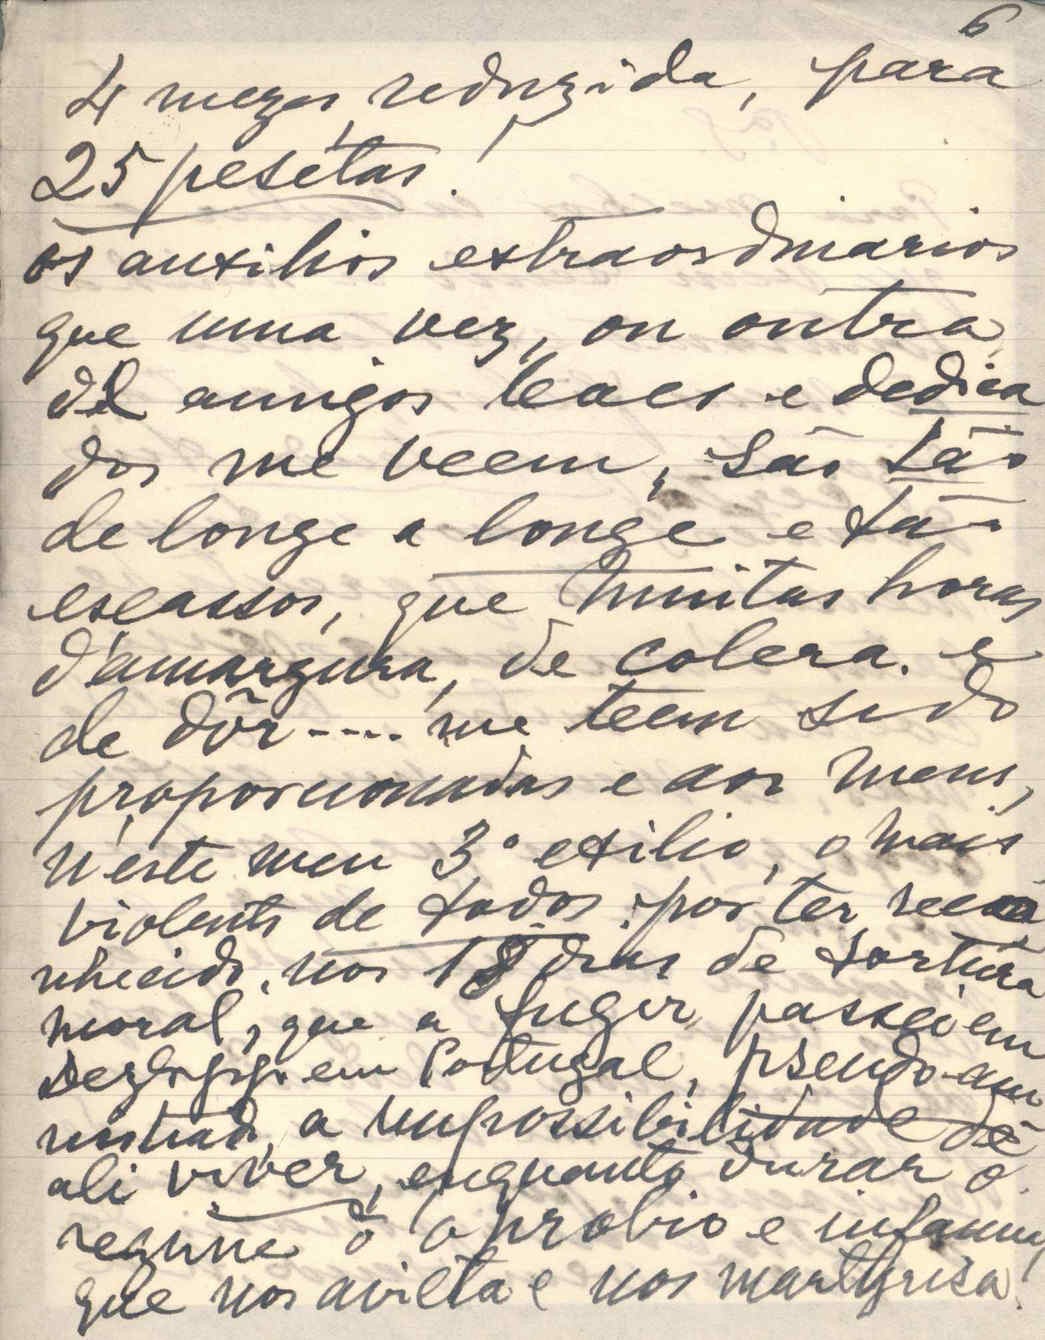 6
4 mezes reduzida, para
25 pesetas!
os auxilios extraordinarios
que uma vez, ou outra
de amigos leaes e dedica
dos me veem, são tão
de longe a longe e tão
escassos, que muitas horas
d'amargura, de colera e
de dôr.... me teem sido
proporcionadas e aos meus,
n'este meu 3º exilio, o mais
violento de todos por ter reco
nhecido, nos 18 dias de tortura
moral, que a fugir passei em
em Portugal, pseudo-am
nistiado, a impossibilidade de
ali viver, enquanto durar o
regime d'oprobio e infamia
que nos avilta e nos martyrisa.